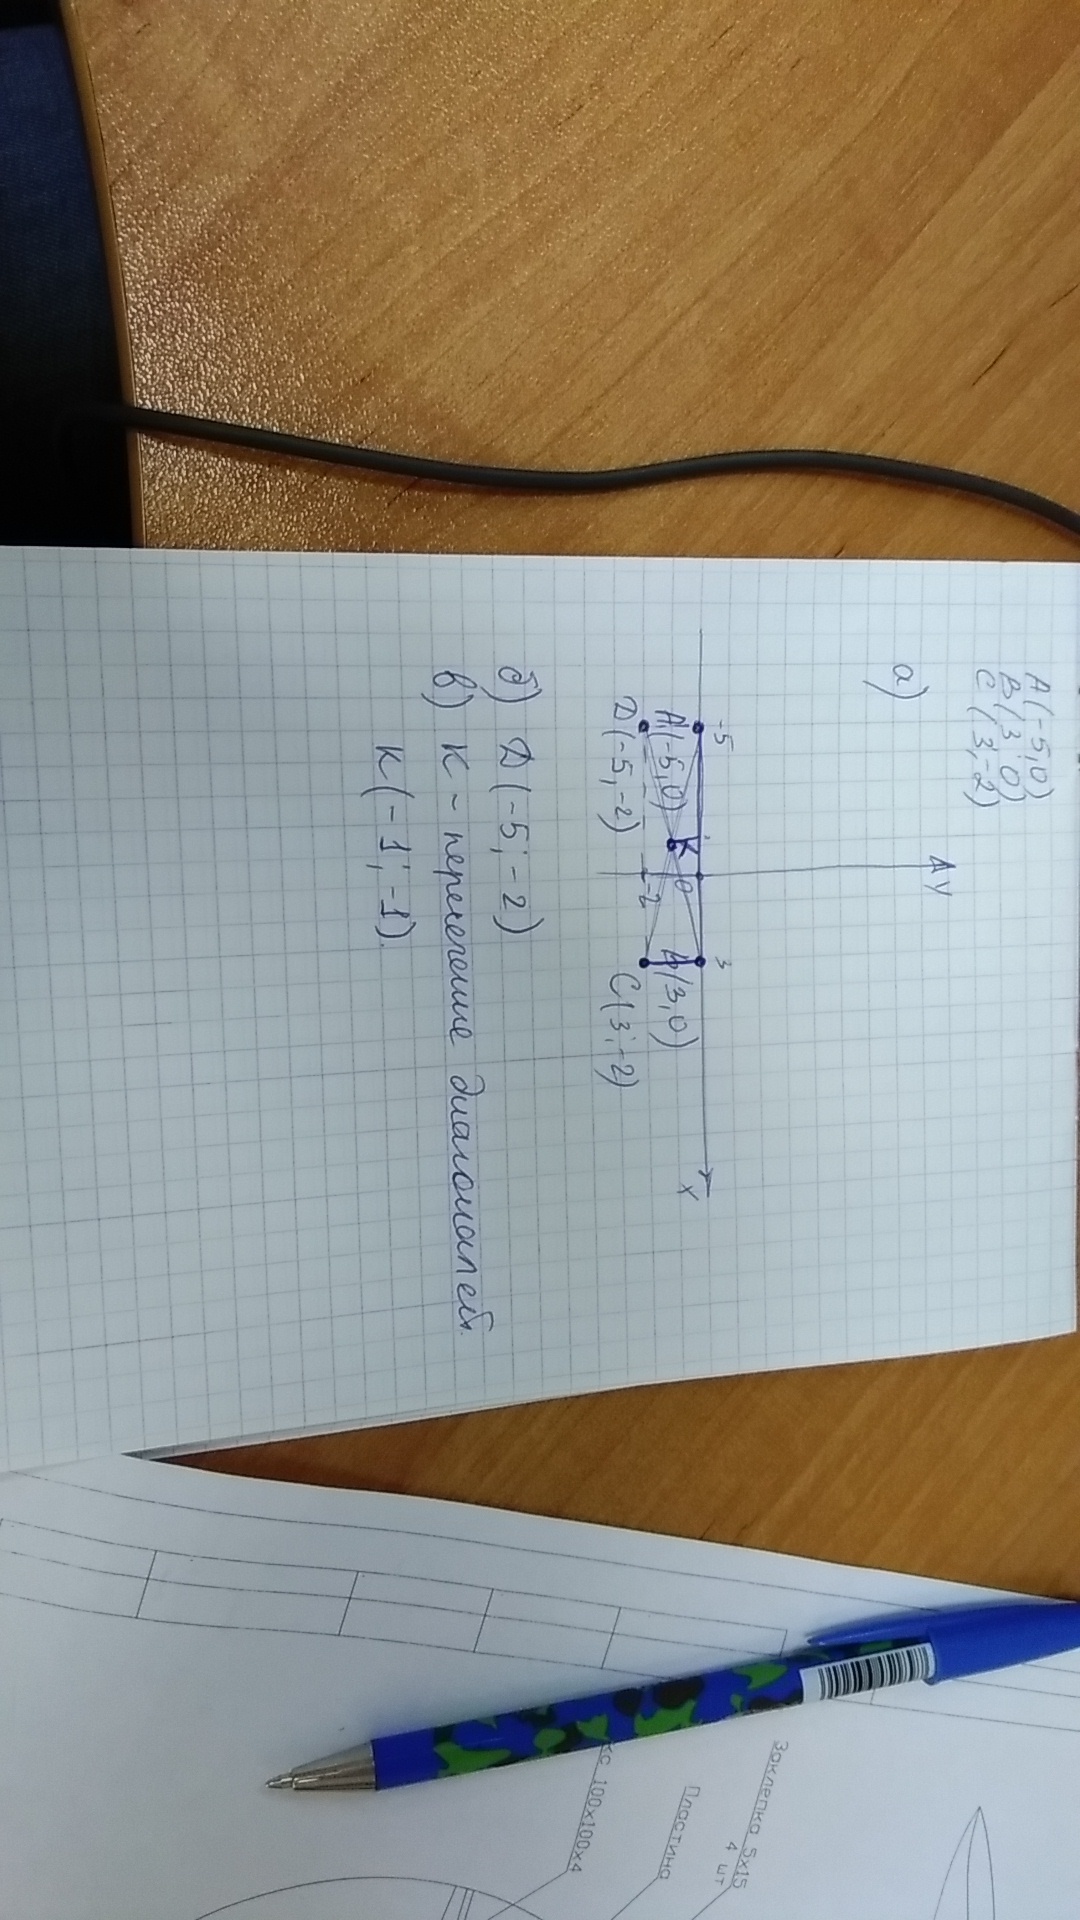 A(-5,0)
B(3,0)
C(3,-2)
а)
y
-5
3
x
K
0
A(-5,0)
B(3,0)
-2
D(-5,-2)
C(3;-2)
б) D(-5;-2)
в) K - пересечение диагоналей.
K(-1;-1).
Заклепка 5x15
4 шт
Пластина
100x100x4